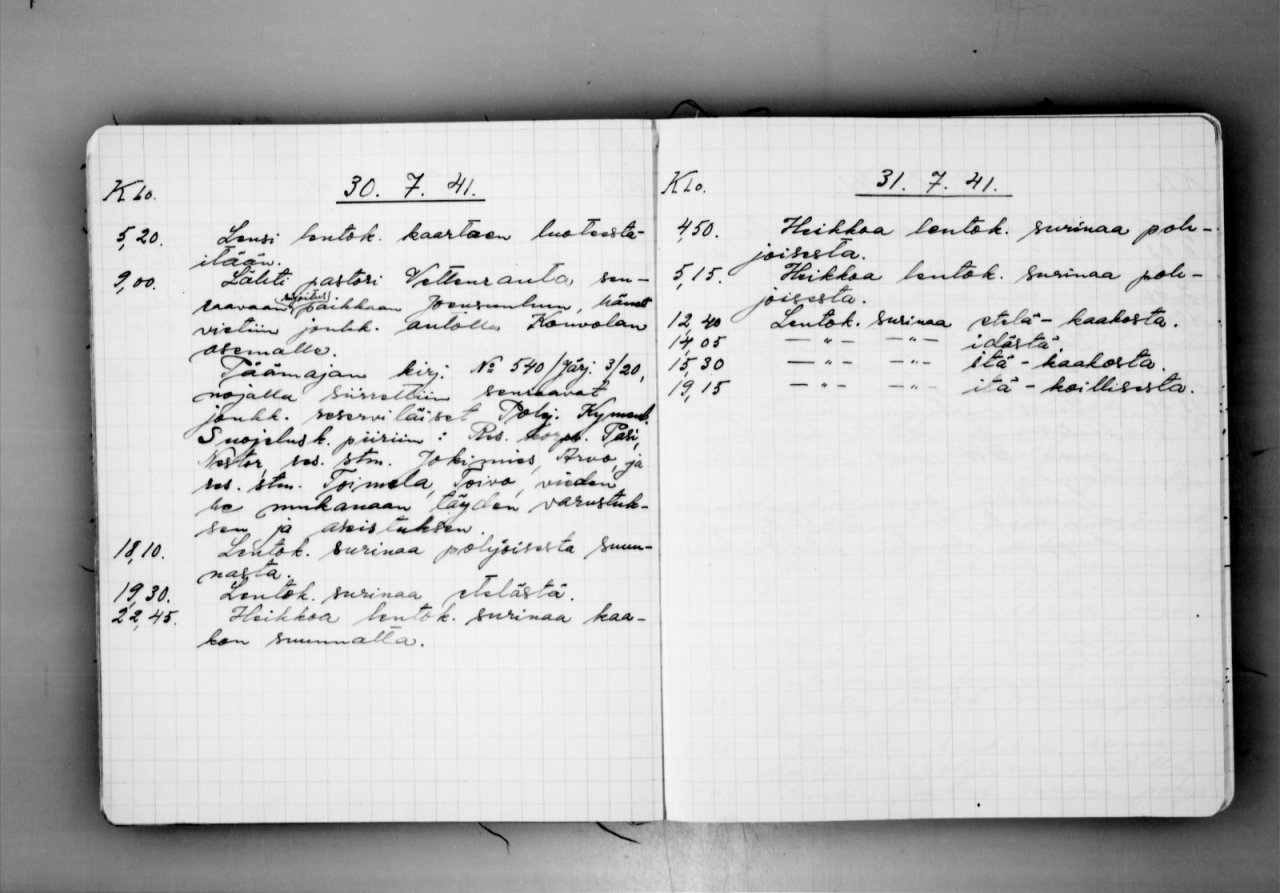 Klo. 30. 7. 41.
5,20. Lensi lentok. kaartaen luoteesta
itään.
9,00. Lähti pastori Vettenranta seu-
raavaan sijoitus paikkaan Joensuuhun, hänet
vietiin joukk. autolla Kouvolan
asemalle.
Päämajan kirj. No 540/Järj. 3/20,
nojalla siirrettiin seuraavat
joukk. reserviläiset Pohj. Kymenl.
Suojelusk. piiriin: Res. korpr. Pasi,
Nestor, res. stm. Jokimies, Arvo, ja
res. stm. Toimela, Toivo, vieden
he mukanaan täyden varustuk-
sen ja aseistuksen.
18,10. Lentok. surinaa pohjoisesta suun-
nasta.
19,30. Lentok. surinaa etelästä.
22,45. Heikkoa lentok. surinaa kaa-
kon suunnalta.
Klo. 31. 7. 41.
4,50. Heikkoa lentok. surinaa poh-
joisesta.
5,15. Heikkoa lentok. surinaa poh-
joisesta.
12,40 Lentok. surinaa etelä-kaakosta.
14,05 — " — — " — idästä.
15,30 — " — — " — itä-kaakosta.
19,15 — " — — " — itä-koillisesta.